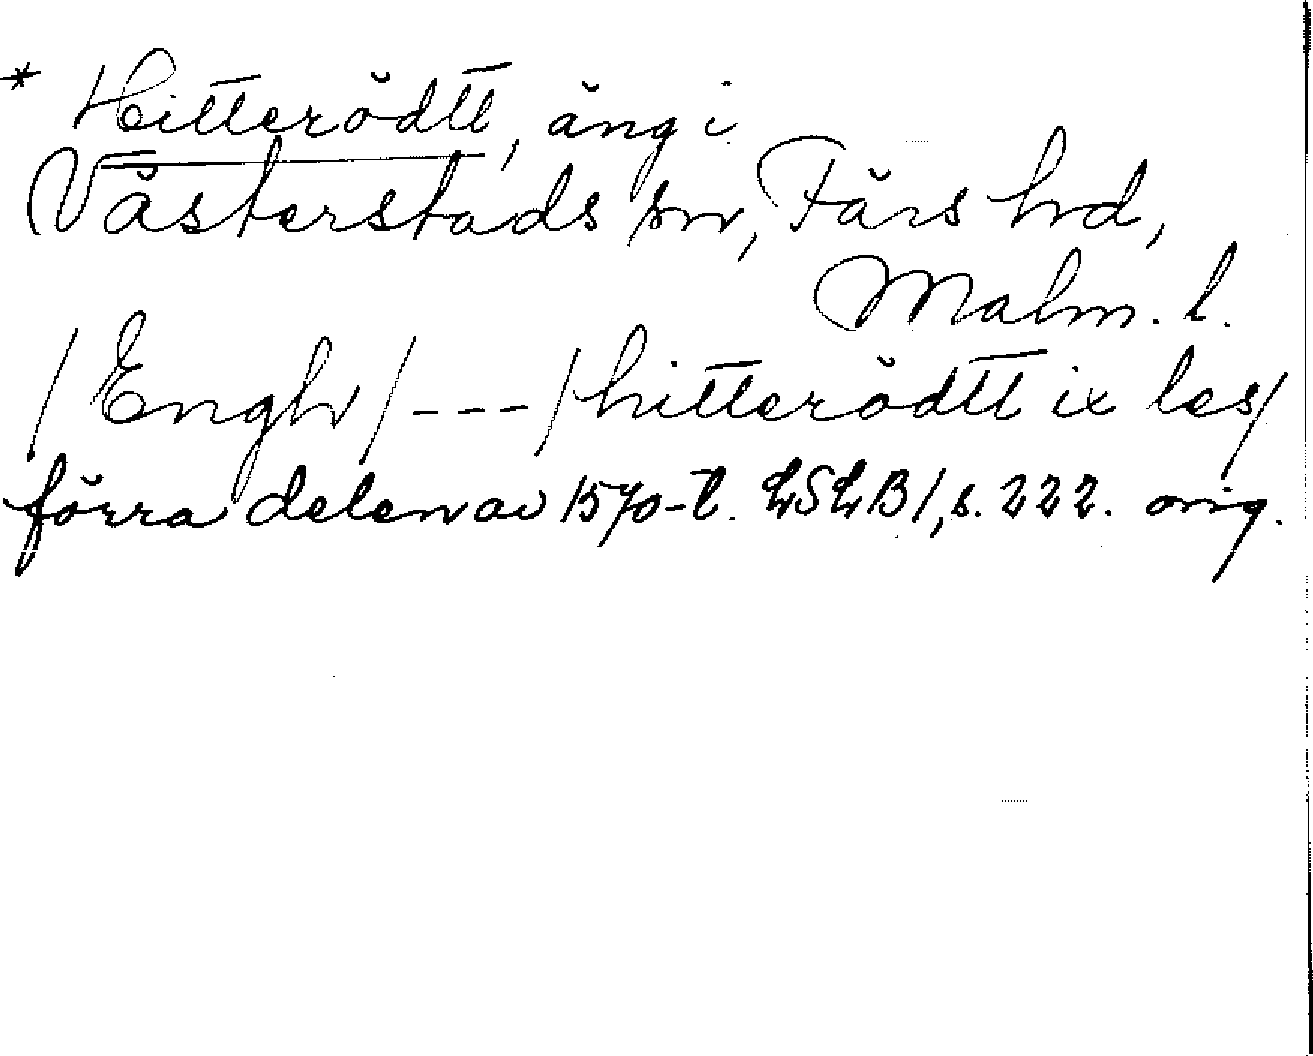 * Hitterödtt, äng i
Västerstads sn, Färs hd,
Malm. l.
/Engh/---/hitterödtt ix les/
förra delen av 1570-t. LSLB1, s. 222. orig.